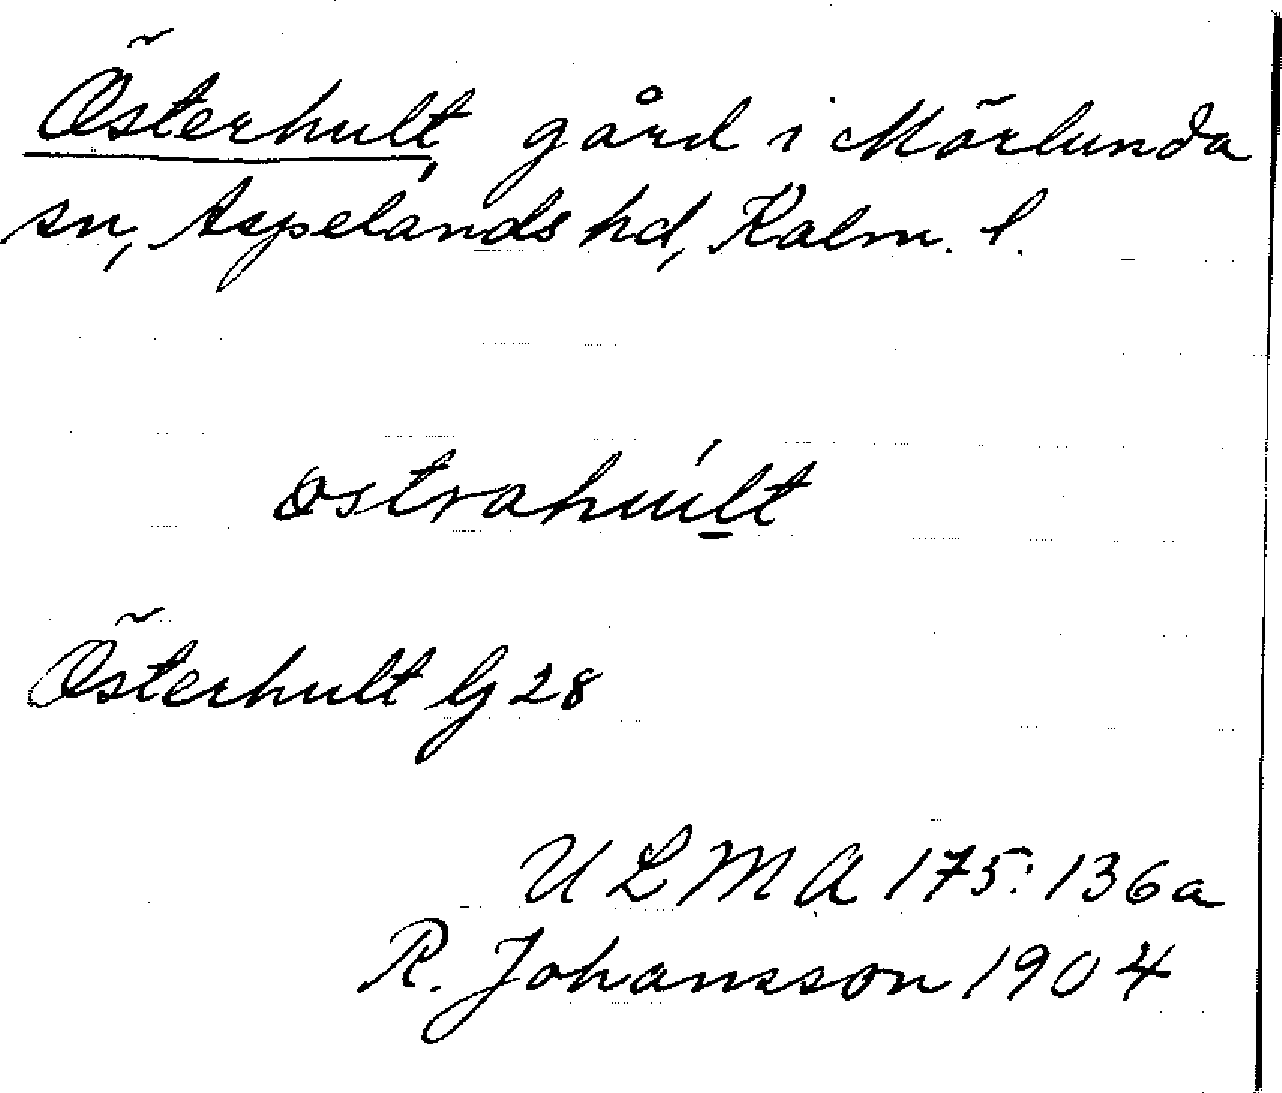 Österhult, gård i Mörlunda
sn, Aspelands hd, Kalm. l.
østrahult
Österhult G 28
ULMA 175:136a
R. Johansson 1904